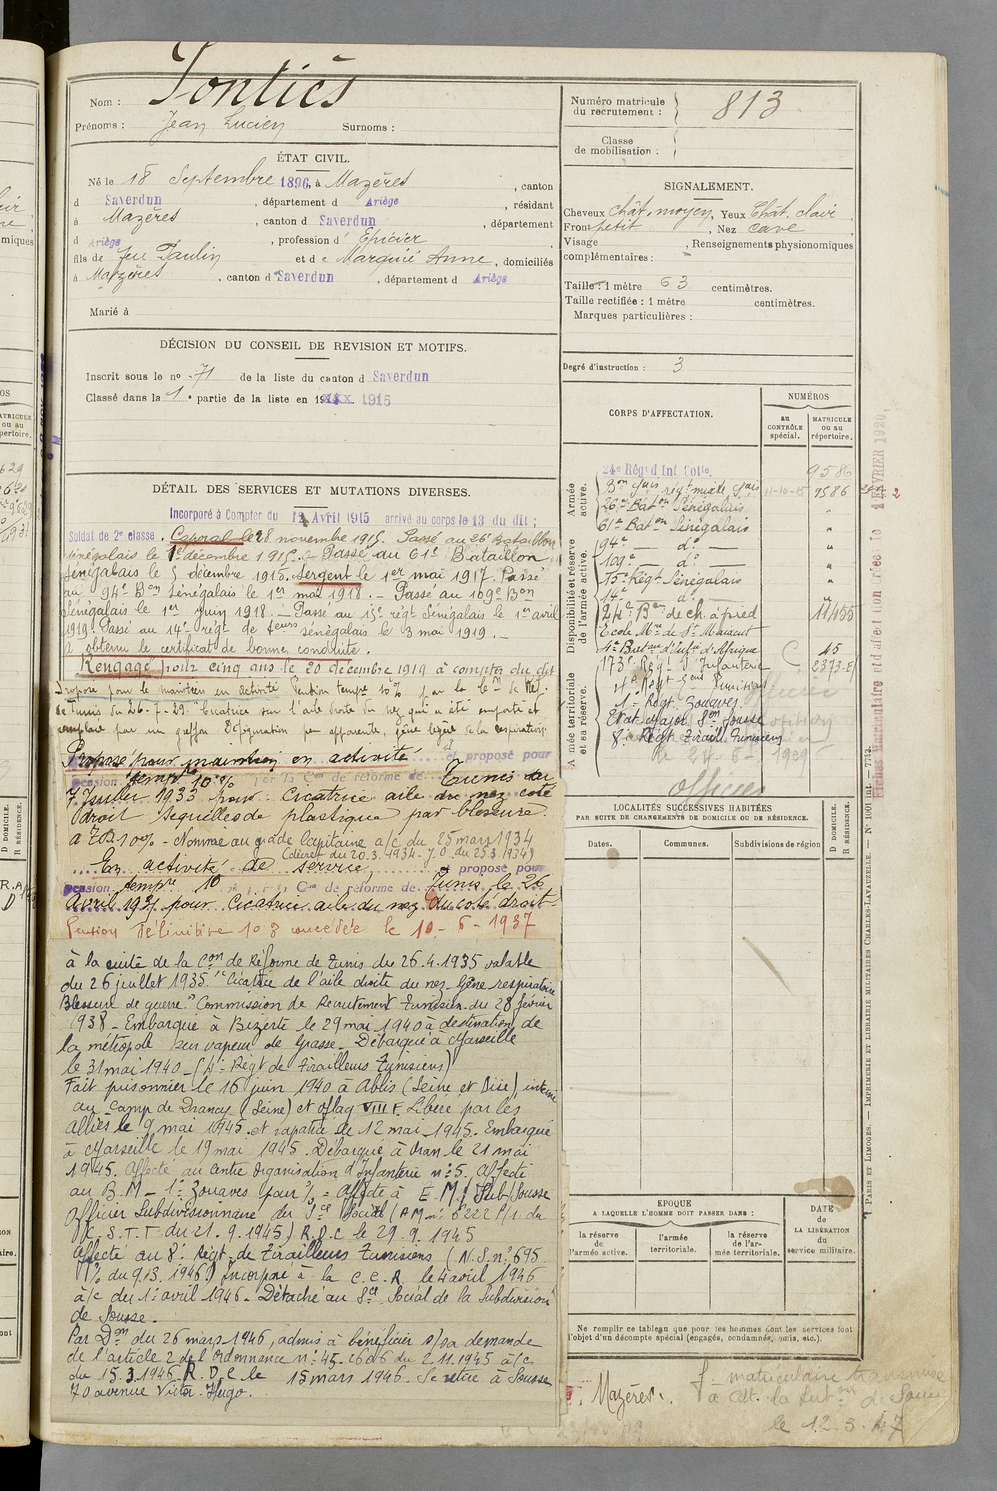 Nom : Pontiès
Prénoms : Jean Lucien Surnoms :
ÉTAT CIVIL.
Né le 18 Septembre 1896, à Mazères, canton
d Saverdun, département d Ariège, résidant
à Mazères, canton d Saverdun, département
d Ariège, profession d' Epicier
fils de feu Paulin et de Marquié Anne, domiciliés
à Mazères, canton d Saverdun, département d Ariège
Marié à
DÉCISION DU CONSEIL DE REVISION ET MOTIFS.
Inscrit sous le no 71 de la liste du canton d Saverdun
Classé dans la 1e partie de la liste en 1915
DÉTAIL DES SERVICES ET MUTATIONS DIVERSES.
Incorporé à Compter du 12 Avril 1915 arrivé au corps le 13 du dit ;
Soldat de 2e classe. Caporal le 28 novembre 1915. Passé au 26e Bataillon
Sénégalais le 1e décembre 1915. Passé au 61e Bataillon
Sénégalais le 5 décembre 1915. Sergent le 1er mai 1917. Passé
au 94e Bon Sénégalais le 1er mai 1918. — Passé au 109e Bon
Sénégalais le 1er Juin 1918. — Passé au 15e régt Sénégalais le 1er avril
1919. Passé au 14e régt de tirs sénégalais le 3 mai 1919. —
a obtenu le certificat de bonne conduite.
Rengagé pour cinq ans le 20 décembre 1919 à compter du dit
Proposé pour le maintien en activité Pension tempre 10 % par la Com de Réf.
de Tunis du 26-7-29. Cicatrice sur l'aile droite du nez qui a été emporté et
remplacé par un greffon Défiguration peu apparente, gêne légère de la respiration
Proposé pour maintien en activité et proposé pour
pension tempre 10 % par la Com de réforme de Tunis du
7 Juillet 1933 pour Cicatrice aile du nez coté
droit sequelles de plastique par blessure.
Nommé au grade Capitaine a/c du 25 mars 1934
(décret du 20.3.1934. J.O. du 25.3.1934)
En activité de service, proposé pour
pension tempre 10 Com de réforme de Tunis le 26
Avril 1937 pour Cicatrice aile du nez du coté droit
Pension Définitive 10 % concédée le 10-6-1937
à la suite de la Com de Réforme de Tunis du 26.4.1935 valable
du 26 juillet 1935. "Cicatrice de l'aile droite du nez. Gêne respiratoire
Blessure de guerre." Commission de Recrutement Tunisien du 28 février
1938 — Embarqué à Bizerte le 29 mai 1940 à destination de
la métropole sur vapeur de Grasse — Débarqué à Marseille
le 31 mai 1940 — (4e Régt de Tirailleurs Tunisiens)
Fait prisonnier le 16 juin 1940 à Ablis (Seine et Oise), interné
au camp de Drancy (Seine) et oflag VIII F. Libéré par les
Alliés le 9 mai 1945 et rapatrié le 12 mai 1945. Embarqué
à Marseille le 19 mai 1945. Débarqué à Oran le 21 mai
1945. Affecté au Centre Organisation d'Infanterie no 5. Affecté
au B.M — 1e Zouaves. Affecté à E.M/ Sub/Sousse
Officier Subdivisionnaire du Sce Social (A M no 6222 P/1 du
C. S. T. T du 21.9.1945) R.D.C le 29.9.1945
Affecté au 8e Régt de Tirailleurs Tunisiens (N.S. no 695
du 9.3.1946) Incorporé à la C.C.R. le 4 avril 1946
a/c du 1e avril 1946 — Détaché au Sce Social de la Subdivision
de Sousse.
Par Don du 26 mars 1946, admis à bénéficier s/sa demande
de l'article 2 de l'Ordonnance no 45.2606 du 2.11.1945 a/c
du 15.3.1946 R.D.C le 15 mars 1946. Se retire à Sousse
70 avenue Victor Hugo.
Numéro matricule du recrutement : 813
Classe de mobilisation :
SIGNALEMENT.
Cheveux chât. moyen Yeux Chât. clair
Front petit, Nez cave
Visage , Renseignements physionomiques
complémentaires :
Taille : 1 mètre 63 centimètres.
Taille rectifiée : 1 mètre centimètres.
Marques particulières :
Degré d'instruction : 3
CORPS D'AFFECTATION.
NUMÉROS
au CONTRÔLE spécial.
MATRICULE ou au répertoire.
Armée active.
Disponibilité et réserve de l'armée active.
Armée territoriale et sa réserve.
24e Régt d'Inf. Colle. 9586
Bon Gais régt mixte Gais 11-10-15 9586
26e Baton Sénégalais "
61e Baton Sénégalais "
94e — do — "
109e — do — "
15e Régt Sénégalais "
14e — do — "
24e Bon de ch. à pied 11455
Ecole Mre de St Maixent
4e Baton d'Infie d'Afrique 45
173e Régt d'Infanterie C 2373.E
4e Régt Tirs Tunisiens
1e Régt. Zouaves
Etat Major Son Sousse
8e Régt Tiraill. Tunisiens
le 24-6-1929
officier
Fiches Matriculaire et d'affectation créées le 1 FÉVRIER 1920
LOCALITÉS SUCCESSIVES HABITÉES
PAR SUITE DE CHANGEMENTS DE DOMICILE OU DE RÉSIDENCE.
Dates.
Communes.
Subdivisions de région
D DOMICILE.
R RÉSIDENCE.
EPOQUE
A LAQUELLE L'HOMME DOIT PASSER DANS :
la réserve de l'armée active.
l'armée territoriale.
la réserve de l'armée territoriale.
DATE de LA LIBÉRATION du service militaire.
Ne remplir ce tableau que pour les hommes dont les services font
l'objet d'un décompte spécial (engagés, condamnés, omis, etc.).
PARIS ET LIMOGES. — IMPRIMERIE ET LIBRAIRIE MILITAIRES CHARLES-LAVAUZELLE. — No 1001 int — 7733.
Mazères.
f. matriculaire transmise
à Cdt. la subon de Sousse
le 12.3.47